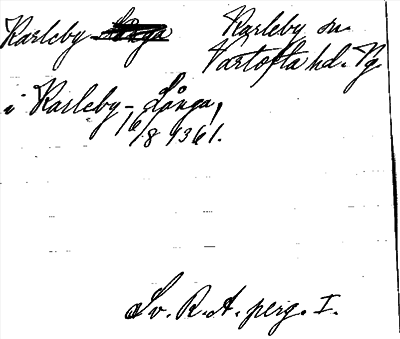 Karleby Karleby sn
Vartofta hd. Vg
i Karleby-Långa,
16/8 1361.
Sv. R. A. perg. I.